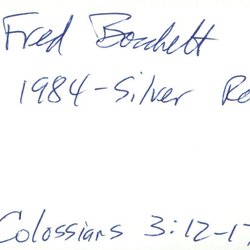 Fred Borchelt
1984-Silver Ro
Colossians 3:12-17